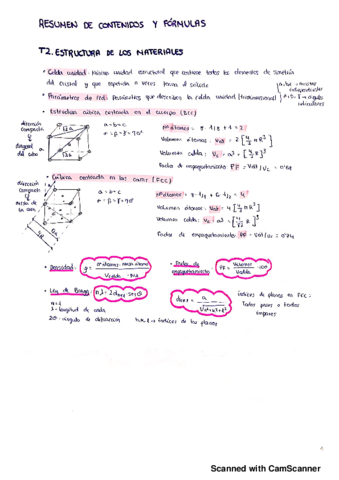 RESUMEN DE CONTENIDOS Y FÓRMULAS
T2. ESTRUCTURA DE LOS MATERIALES
• Celda unidad: mínima unidad estructural que contiene todos los elementos de simetría
del cristal y que repetida n veces forma el sólido
• Parámetros de red: parámetros que describen la celda unidad (tridimensional)
• Estructura cúbica centrada en el cuerpo (BCC)
dirección
compacta
diagonal
del cubo
a = b = c
α = β = γ = 90°
nº átomos = 8 · 1/8 + 1 = 2
Volumen átomos: Vat = 2 [4/3 π R³]
Volumen celda: Vc = a³ = [4/√3 R]³
Factor de empaquetamiento PF = Vat/Vc = 0'68
• Cúbica centrada en las caras (FCC)
dirección
compacta
a = b = c
α = β = γ = 90°
nº átomos = 8 · 1/8 + 6 · 1/2 = 4
Volumen átomos: Vat = 4 [4/3 π R³]
Volumen celda: Vc = a³ = [4/√2 R]³
Factor de empaquetamiento: PF = Vat/Vc = 0'74
• Densidad:
• Factor de
empaquetamiento
• Ley de Bragg: nλ = 2dhkl · sen θ
n = 1
λ = longitud de onda
2θ = ángulo de difracción
h, k, l → índices de los planos
índices de planos en FCC:
Todos pares o todos
impares
Scanned with CamScanner